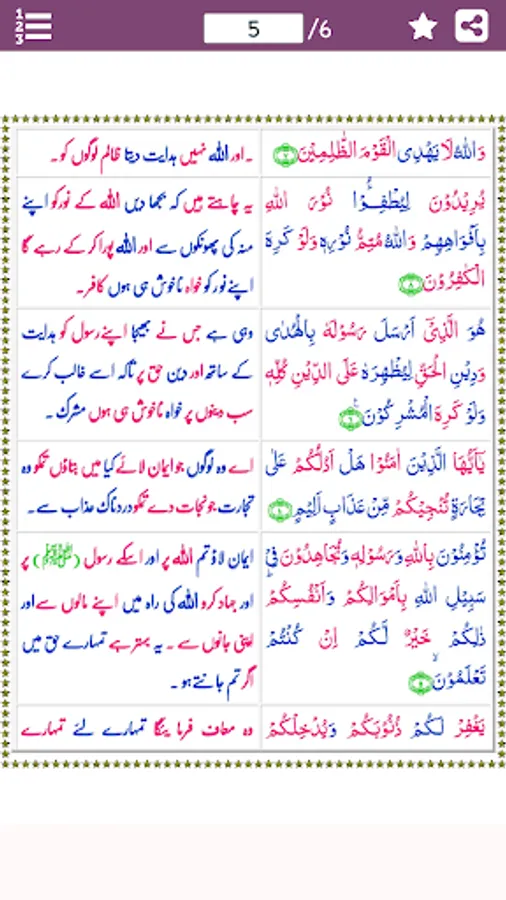 5 /6
وَاللّٰهُ لَا يَهْدِى الْقَوْمَ الظّٰلِمِيْنَ ۝۷
۔اور اللہ نہیں ہدایت دیتا ظالم لوگوں کو۔
يُرِيْدُوْنَ لِيُطْفِـُٔوْا نُوْرَ اللّٰهِ
بِاَفْوَاهِهِمْ وَاللّٰهُ مُتِمُّ نُوْرِهٖ وَلَوْ كَرِهَ
الْكٰفِرُوْنَ ۝۸
یہ چاہتے ہیں کہ بجھا دیں اللہ کے نور کو اپنے
منہ کی پھونکوں سے اور اللہ پورا کر کے رہے گا
اپنے نور کو خواہ ناخوش ہی ہوں کافر۔
هُوَ الَّذِىْٓ اَرْسَلَ رَسُوْلَهٗ بِالْهُدٰى
وَدِيْنِ الْحَقِّ لِيُظْهِرَهٗ عَلَى الدِّيْنِ كُلِّهٖ
وَلَوْ كَرِهَ الْمُشْرِكُوْنَ ۝۹
وہی ہے جس نے بھیجا اپنے رسول کو ہدایت
کے ساتھ اور دین حق پر تاکہ اسے غالب کرے
سب دینوں پر خواہ ناخوش ہی ہوں مشرک۔
يٰٓاَيُّهَا الَّذِيْنَ اٰمَنُوْا هَلْ اَدُلُّكُمْ عَلٰى
تِجَارَةٍ تُنْجِيْكُمْ مِّنْ عَذَابٍ اَلِيْمٍ
اے وہ لوگوں جو ایمان لائے کیا میں بتاؤں تمکو وہ
تجارت جو نجات دے تمکو دردناک عذاب سے۔
تُؤْمِنُوْنَ بِاللّٰهِ وَرَسُوْلِهٖ وَتُجَاهِدُوْنَ فِىْ
سَبِيْلِ اللّٰهِ بِاَمْوَالِكُمْ وَاَنْفُسِكُمْ
ذٰلِكُمْ خَيْرٌ لَّكُمْ اِنْ كُنْتُمْ
تَعْلَمُوْنَۙ
ایمان لاؤ تم اللہ پر اور اسکے رسول (ﷺ) پر
اور جہاد کرو اللہ کی راہ میں اپنے مالوں سے اور
اپنی جانوں سے ۔ یہ بہتر ہے تمہارے حق میں
اگر تم جانتے ہو۔
يَغْفِرْ لَكُمْ ذُنُوْبَكُمْ وَيُدْخِلْكُمْ
وہ معاف فرما یٔگا تمہارے لئے تمہارے